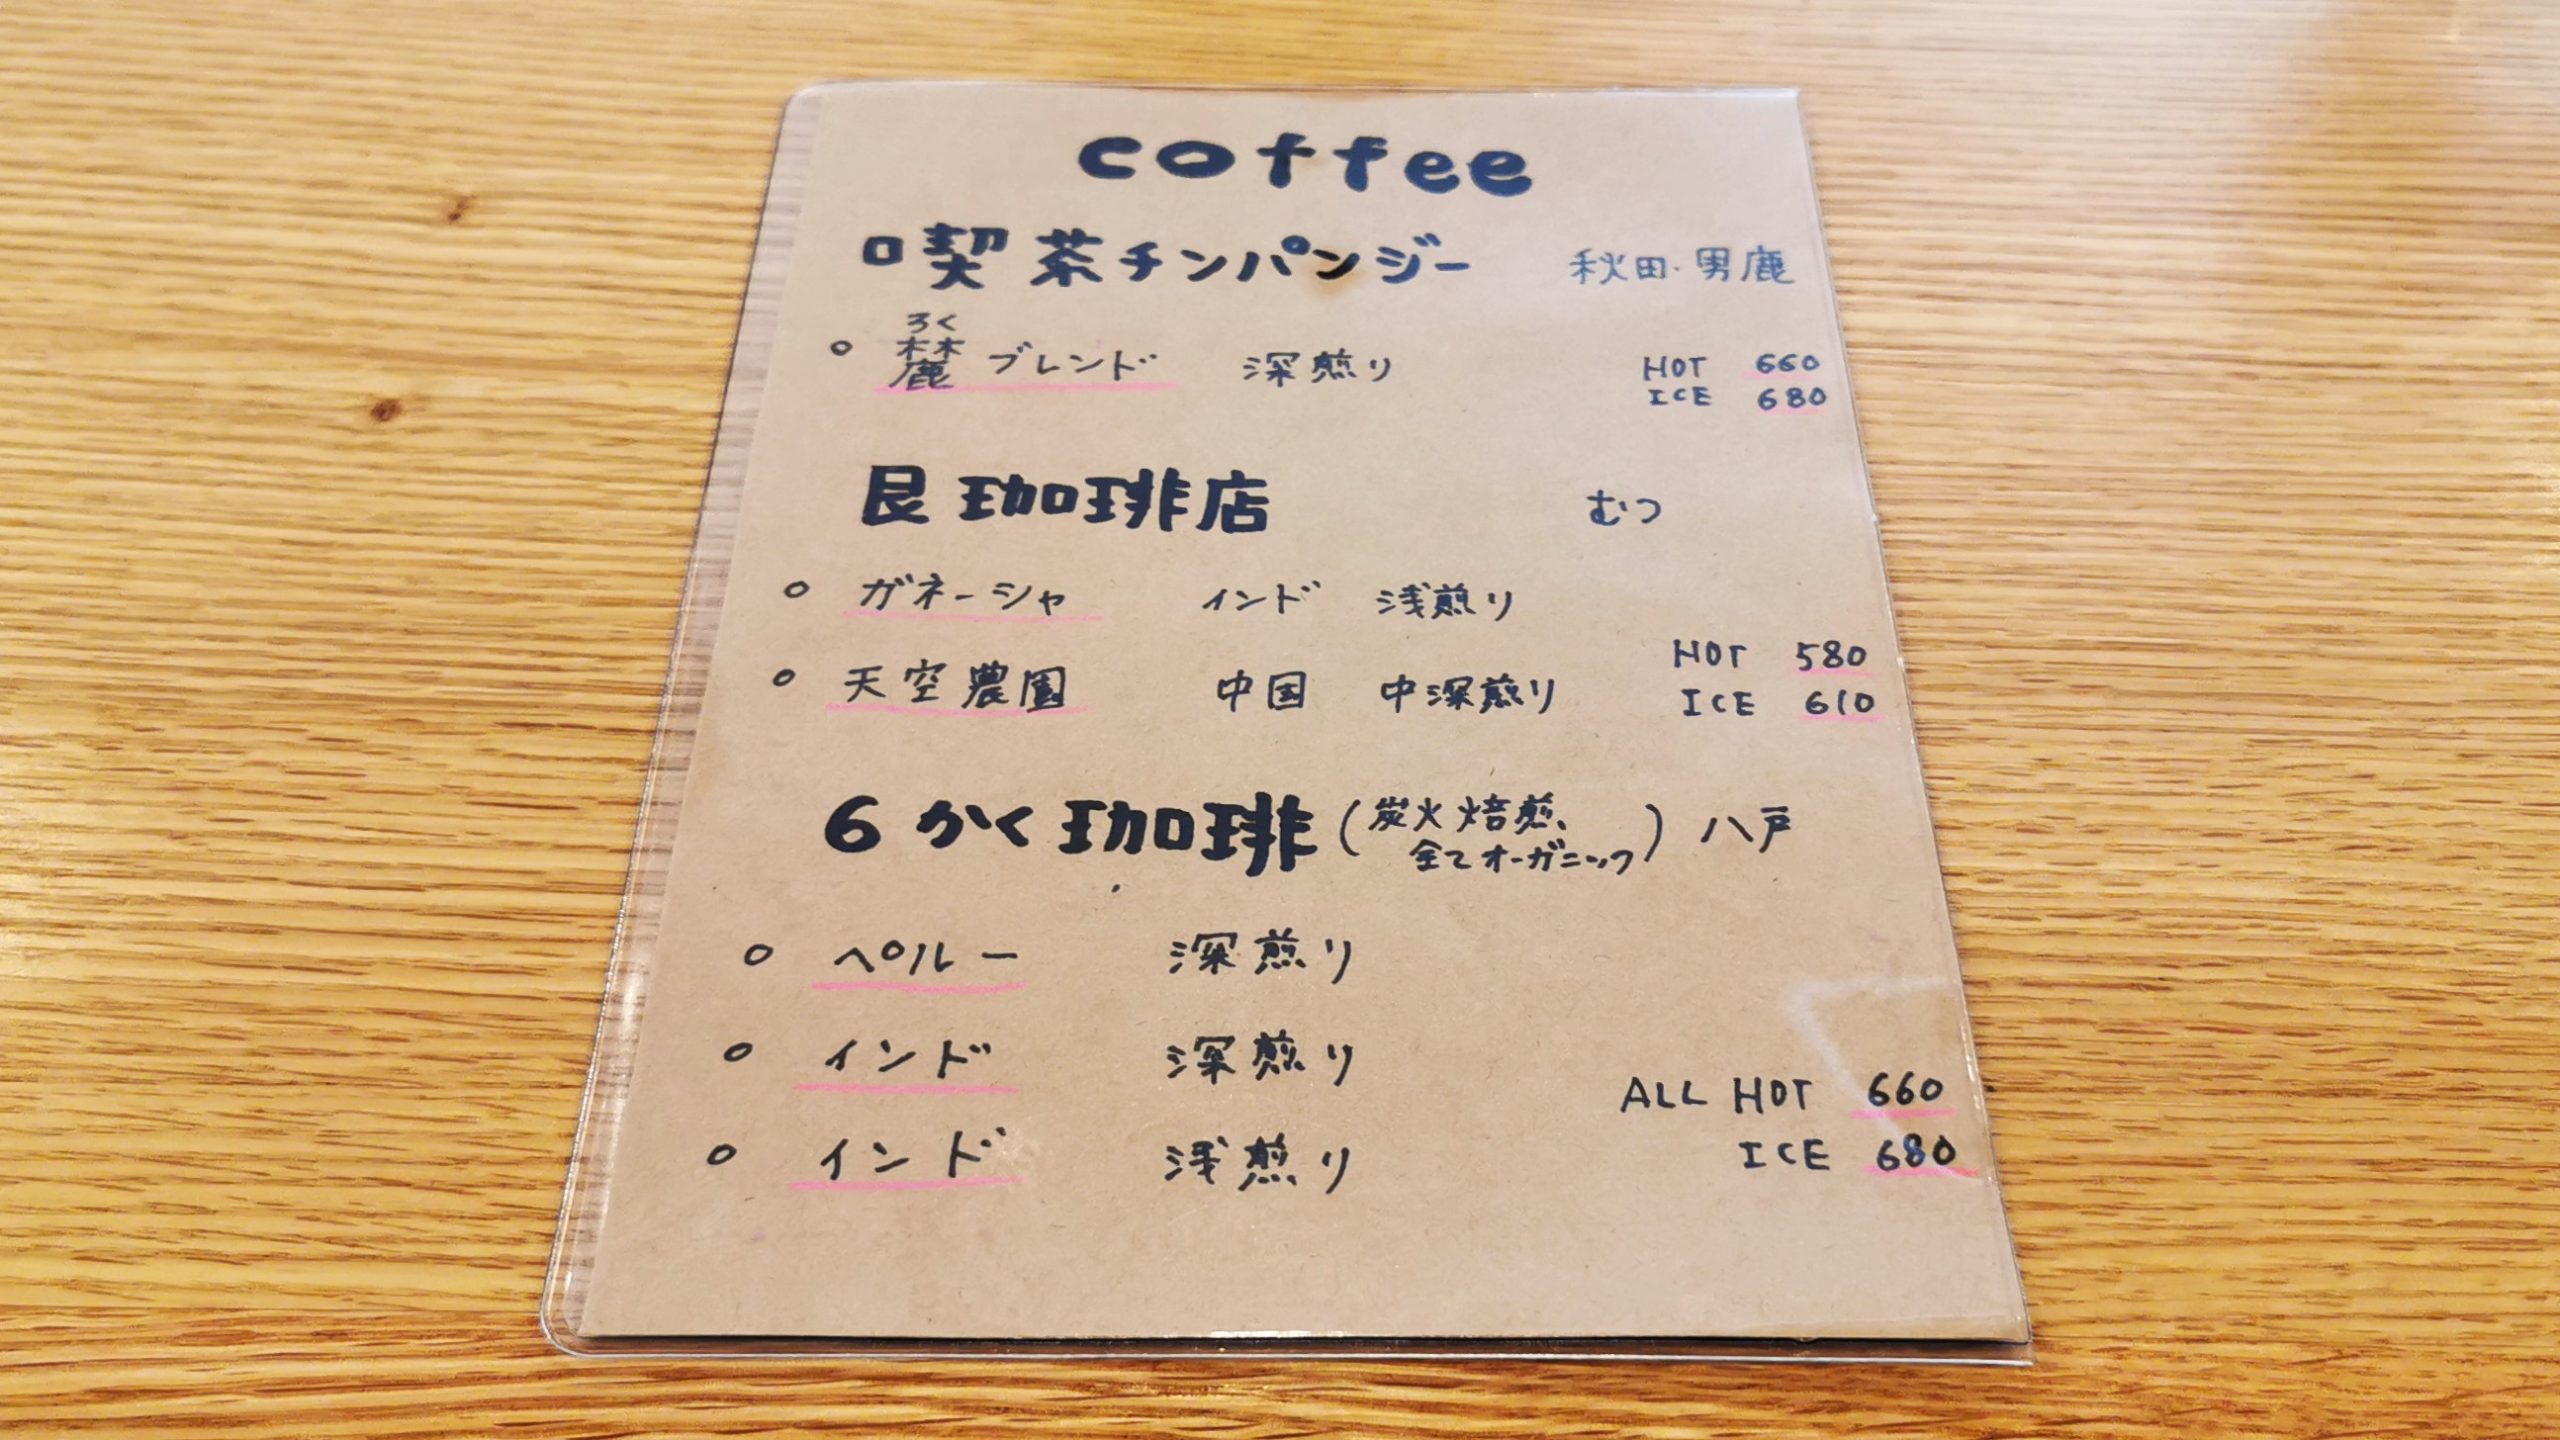 coffee
喫茶チンパンジー 秋田・男鹿
ろく
麓ブレンド 深煎り HOT 660
ICE 680
艮珈琲店 むつ
ガネーシャ インド 浅煎り
HOT 580
天空農園 中国 中深煎り ICE 610
6かく珈琲(炭火焙煎、全てオーガニック) 八戸
ペルー 深煎り
インド 深煎り
ALL HOT 660
インド 浅煎り ICE 680